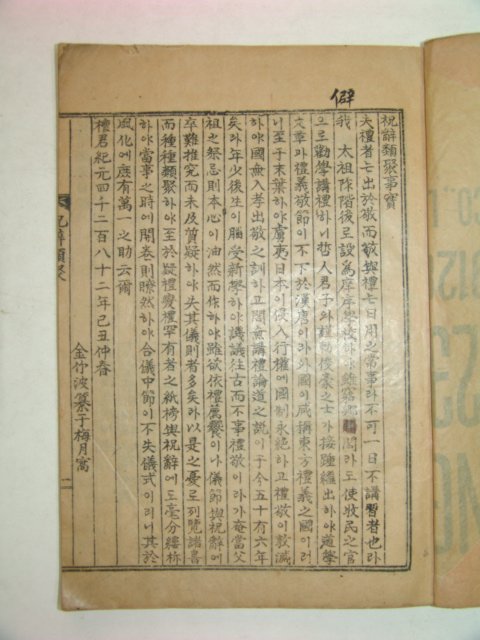 僻
祝辭類聚事實
夫禮者と出於敬而敬與禮と日用之常事라不可一日不講習者也라
我 太祖陟階後로設爲庠序學校하야雖窮鄕 閭라도使牧民之官
으로勸學講禮하니哲人君子와權門後豪之士가接踵繼出하야道學
文章과禮義敬節이不下於漢唐이라外國이咸稱東方禮義之國이러
니至于末葉하야寇夷日本이侵入行權에國制永絶하고禮敬이敦滅
하야國無入孝出敬之訓하고閭無講禮論道之說이于今五十有六年
矣라年少後生이腦受新學하야譏議往古而不事禮敬이라가奄當父
祖之祭忌則本心이油然而作하야雖欲依禮薦饗이나儀節與祝辭에
卒難推究而未及質疑하야失其儀則者多矣라以是之憂로列覽諸書
而種種類聚하야至於疑禮變禮罕有者之紙榜與祝辭에도毫分縷析
하야當事之時에開卷則瞭然하야合儀中節이不失儀式이리니其於
風化에應有萬一之助云爾
檀君紀元四千二百八十二年己丑仲春
金竹波纂于梅月窩
祝辭類聚
二